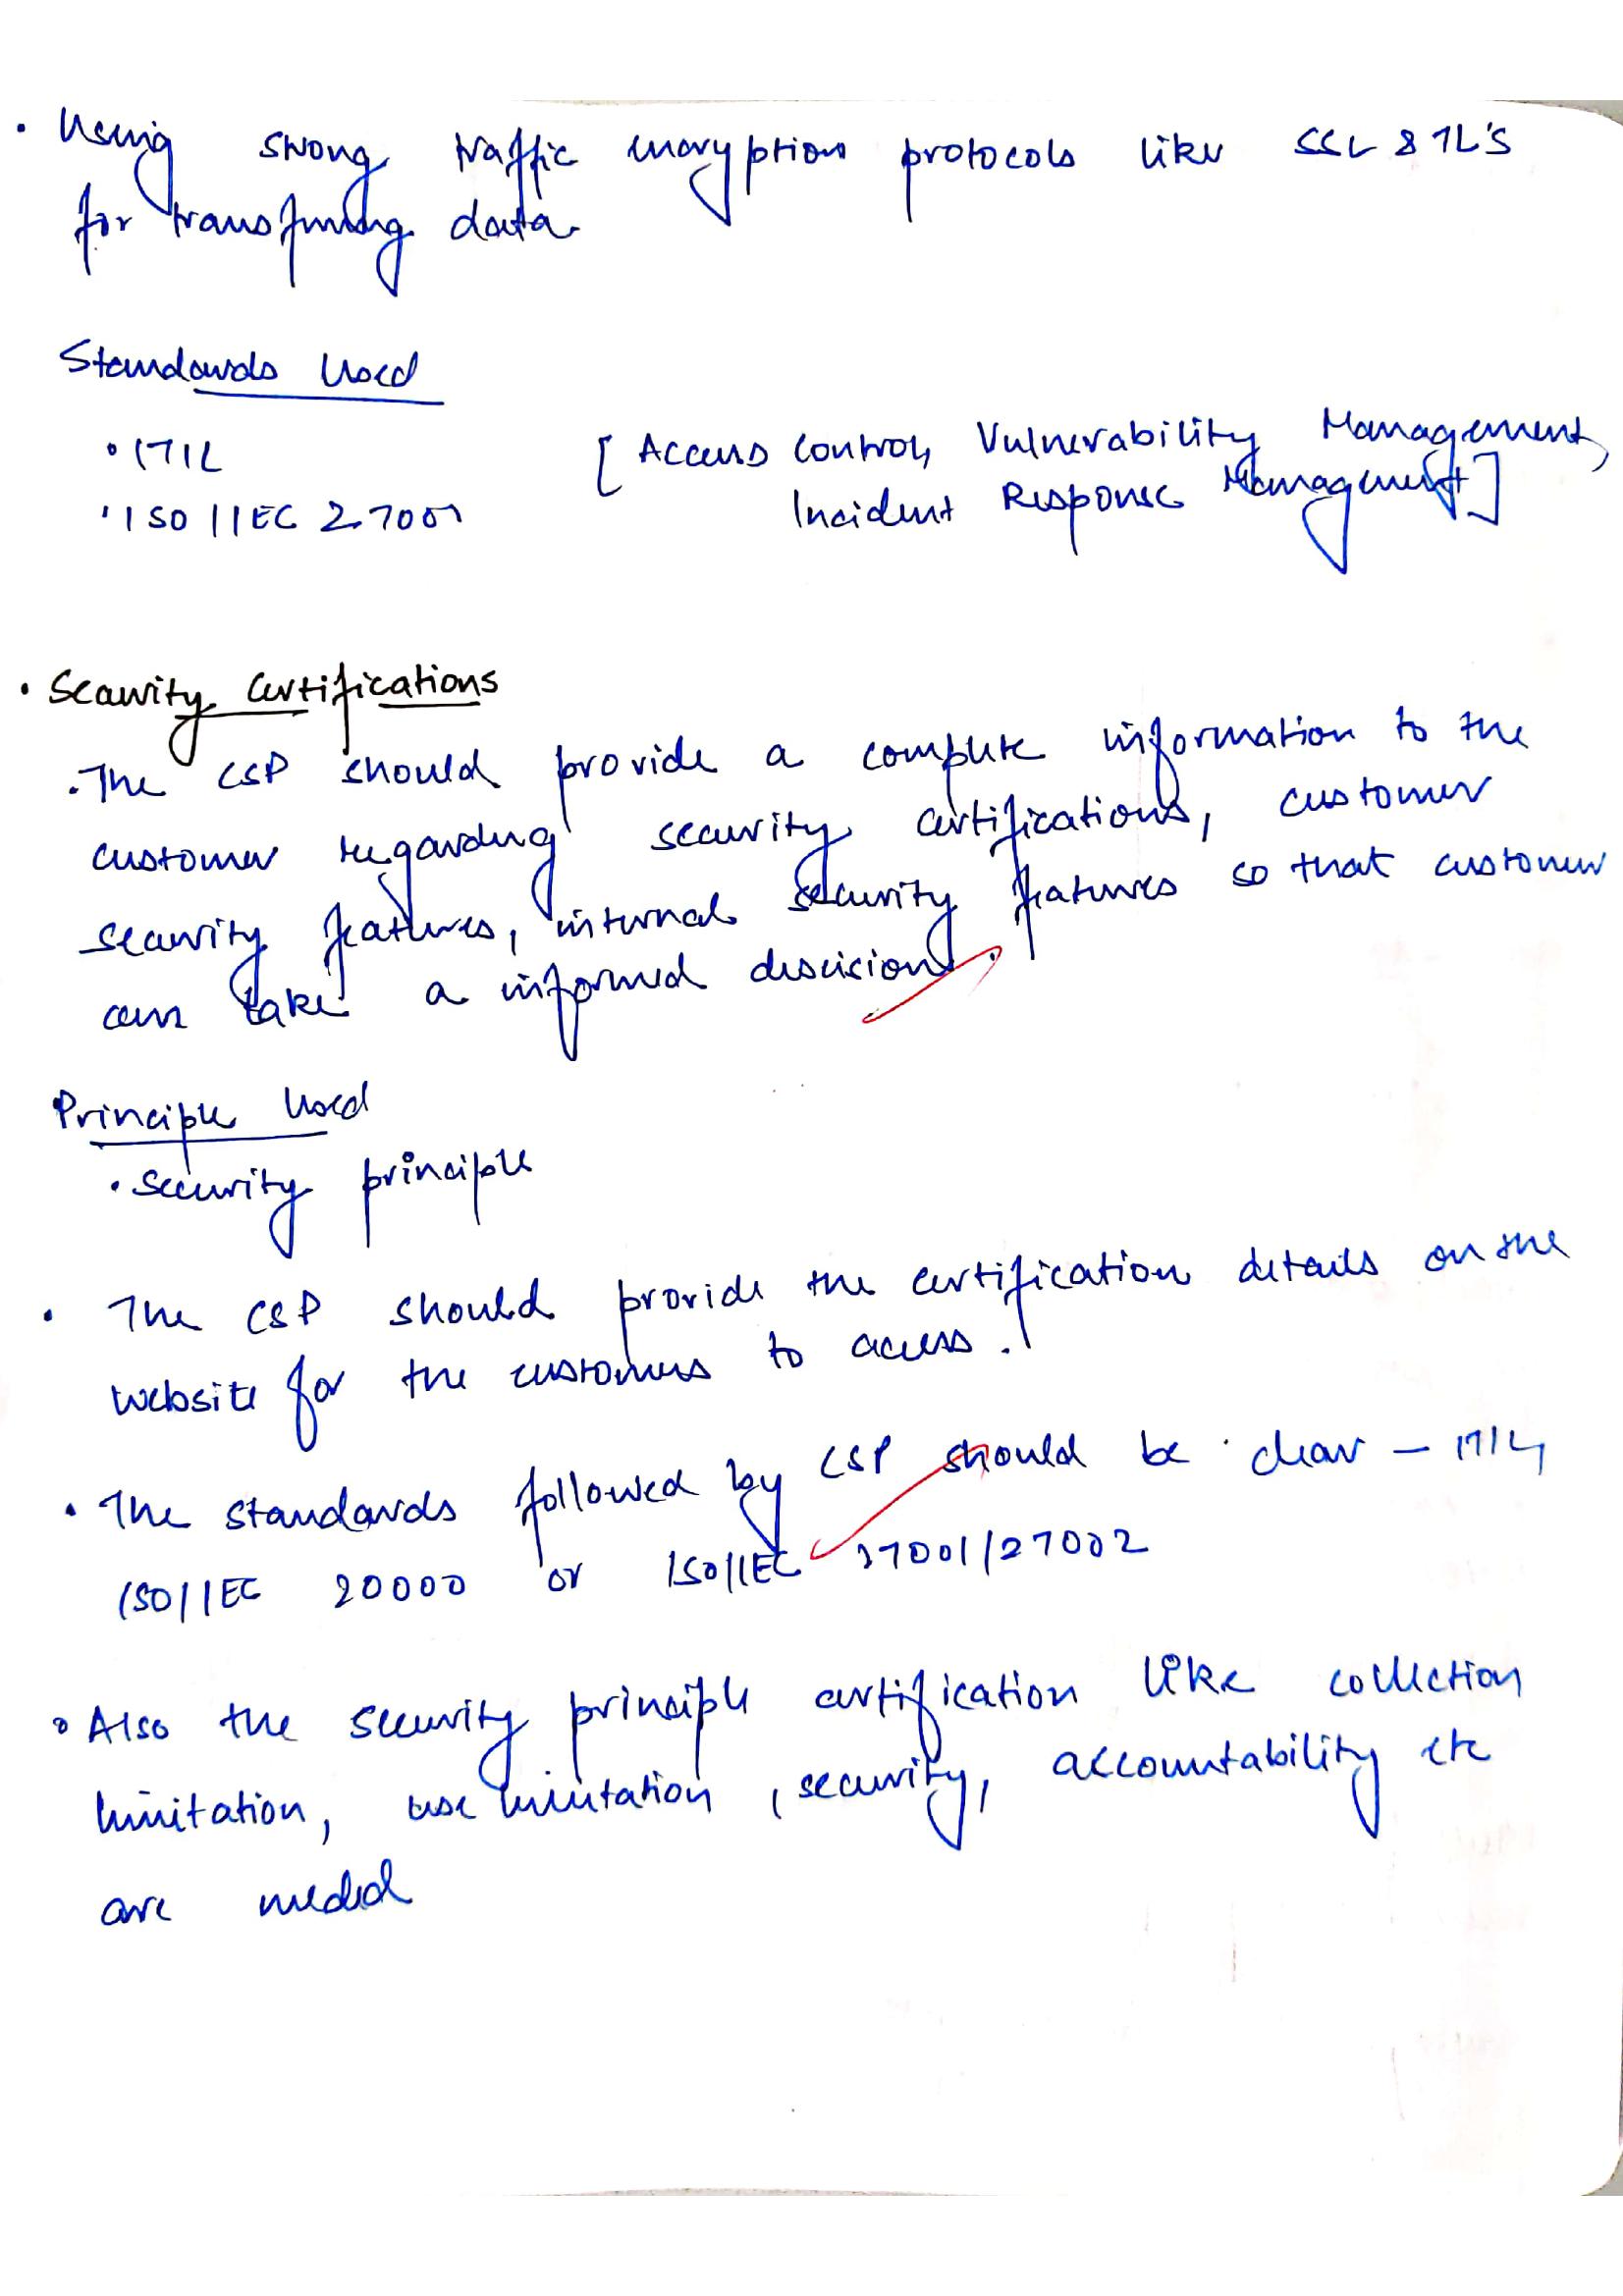 • Using strong traffic encryption protocols like SSL & TL'S
for transferring data
Standards Used
• ITIL [Access Control, Vulnerability Management,
• ISO/IEC 27001 Incident Response Management]
• Security Certifications
• The CSP should provide a complete information to the
customer regarding security certifications, customer
security features, internal security features so that customer
can take a informed descision.
Principle Used
• Security principle
• The CSP should provide the certification details on the
website for the customers to access.
• The standards followed by CSP should be clear – ITIL,
ISO/IEC 20000 or ISO/IEC 27001/27002
• Also the security principle certification like collection
limitation, use limitation, security, accountability etc
are needed